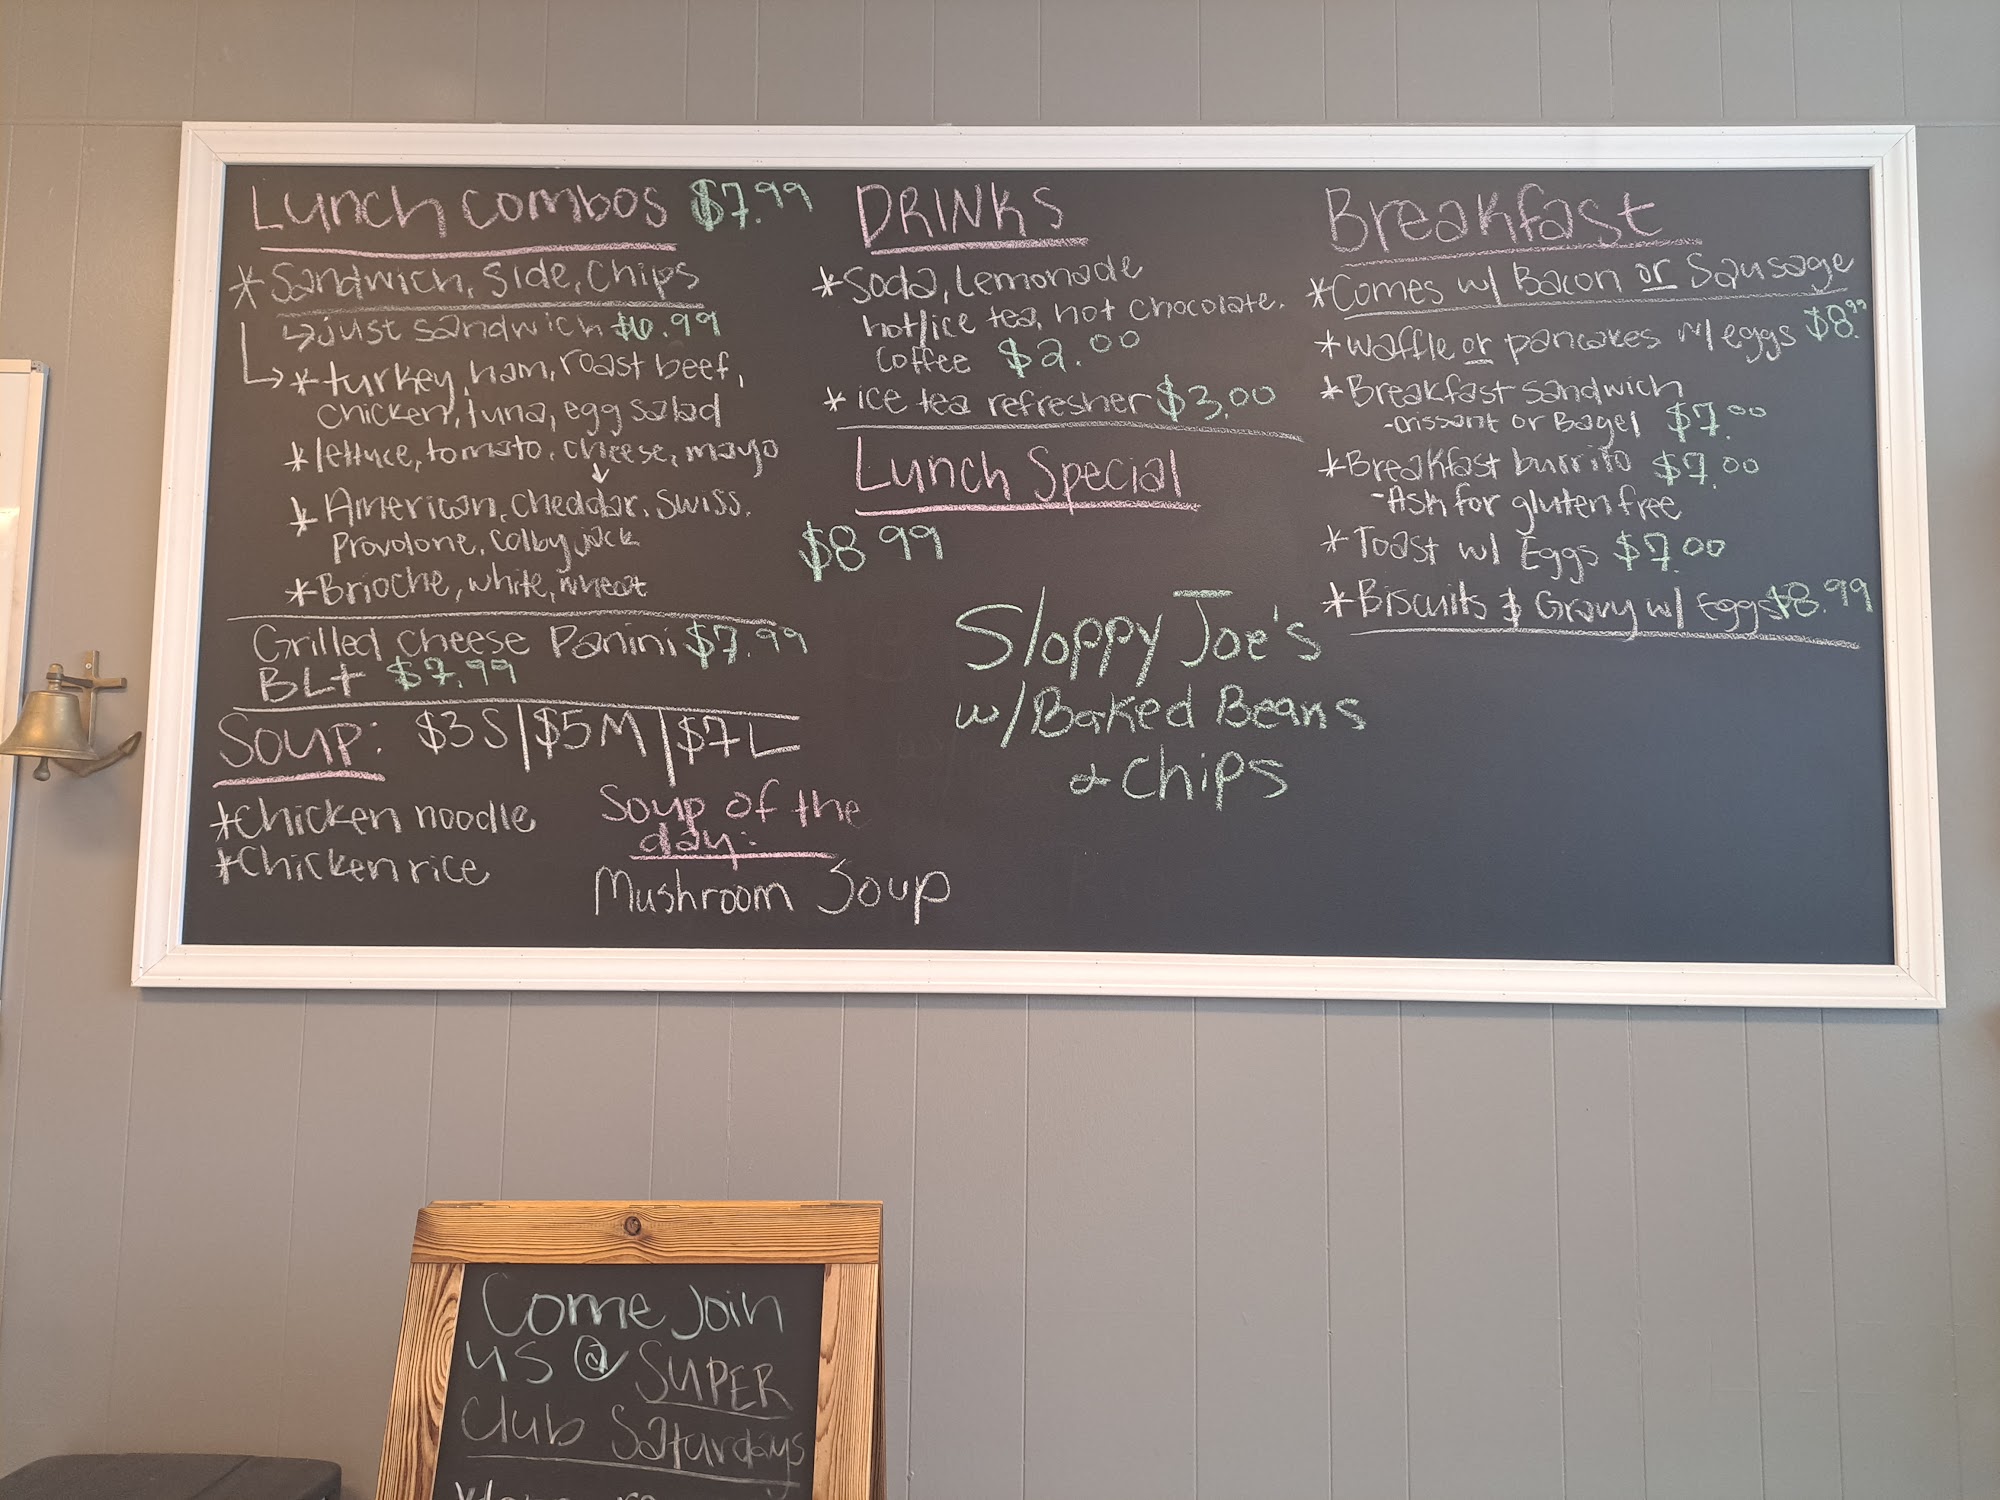 Lunch combos $7.99
*Sandwich, side, chips
↳just sandwich $6.99
*turkey, ham, roast beef,
chicken, tuna, egg salad
*lettuce, tomato, cheese, mayo
*American, cheddar, swiss,
Provolone, colby jack
*Brioche, white, wheat
Grilled cheese Panini $7.99
BLt $7.99
Soup: $3 S|$5 M|$7 L
*Chicken noodle
*Chicken rice
Soup of the
day:
Mushroom Soup
DRINKS
*Soda, Lemonade
hot/ice tea, hot chocolate,
coffee $2.00
*ice tea refresher $3.00
Lunch Special
$8.99
Sloppy Joe's
w/Baked Beans
& Chips
Breakfast
*Comes w/ Bacon or Sausage
*waffle or pancakes w/ eggs $8.99
*Breakfast sandwich
-crissant or Bagel $7.00
*Breakfast burrito $7.00
-Ask for gluten free
*Toast w/ Eggs $7.00
*Biscuits & Gravy w/ Eggs $8.99
Come Join
us @ SUPER
Club Saturdays